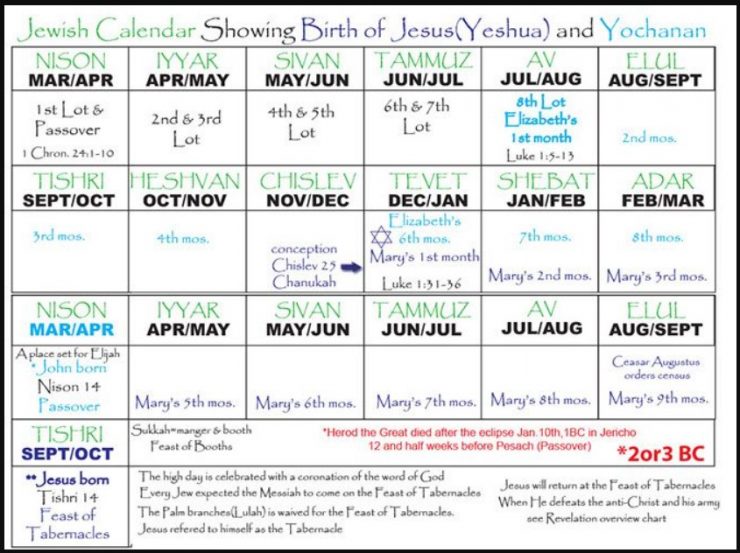 Jewish Calendar Showing Birth of Jesus(Yeshua) and Yochanan
NISON
MAR/APR
IYYAR
APR/MAY
SIVAN
MAY/JUN
TAMMUZ
JUN/JUL
AV
JUL/AUG
ELUL
AUG/SEPT
1st Lot &
Passover
1 Chron. 24:1-10
2nd & 3rd
Lot
4th & 5th
Lot
6th & 7th
Lot
8th Lot
Elizabeth's
1st month
Luke 1:5-13
2nd mos.
TISHRI
SEPT/OCT
HESHVAN
OCT/NOV
CHISLEV
NOV/DEC
TEVET
DEC/JAN
SHEBAT
JAN/FEB
ADAR
FEB/MAR
3rd mos.
4th mos.
conception
Chislev 25
Chanukah
Elizabeth's
6th mos.
Mary's 1st month
Luke 1:31-36
7th mos.
Mary's 2nd mos.
8th mos.
Mary's 3rd mos.
NISON
MAR/APR
IYYAR
APR/MAY
SIVAN
MAY/JUN
TAMMUZ
JUN/JUL
AV
JUL/AUG
ELUL
AUG/SEPT
A place set for Elijah
*John born
Nison 14
Passover
Mary's 5th mos.
Mary's 6th mos.
Mary's 7th mos.
Mary's 8th mos.
Ceasar Augustus
orders census
Mary's 9th mos.
TISHRI
SEPT/OCT
Sukkah=manger & booth
Feast of Booths
*Herod the Great died after the eclipse Jan.10th,1BC in Jericho
12 and half weeks before Pesach (Passover)
*2or3 BC
**Jesus born
Tishri 14
Feast of
Tabernacles
The high day is celebrated with a coronation of the word of God
Every Jew expected the Messiah to come on the Feast of Tabernacles
The Palm branches(Lulah) is waived for the Feast of Tabernacles.
Jesus refered to himself as the Tabernacle
Jesus will return at the Feast of Tabernacles
When He defeats the anti-Christ and his army
see Revelation overview chart